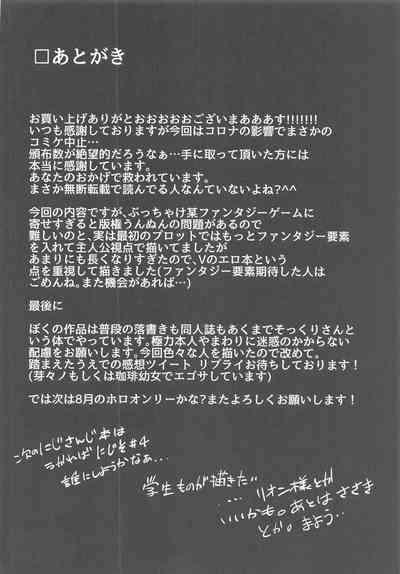 □あとがき
お買い上げありがとおおおおおございまあああす!!!!!!!
いつも感謝しておりますが今回はコロナの影響でまさかの
コミケ中止…
頒布数が絶望的だろうなぁ…手に取って頂いた方には
本当に感謝しています。
あなたのおかげで救われています。
まさか無断転載で読んでる人なんていないよね?^^
今回の内容ですが、ぶっちゃけ某ファンタジーゲームに
寄せすぎると版権うんぬんの問題があるので
難しいのと、実は最初のプロットではもっとファンタジー要素
を入れて主人公視点で描いてましたが
あまりにも長くなりすぎたので、Vのエロ本という
点を重視して描きました(ファンタジー要素期待した人は
ごめんね。また機会があれば…)
最後に
ぼくの作品は普段の落書きも同人誌もあくまでそっくりさんと
いう体でやっています。極力本人やまわりに迷惑のかからない
配慮をお願いします。今回色々な人を描いたので改めて。
踏まえたうえでの感想ツイート リプライお待ちしております!
(芽々もしくは珈琲幼女でエゴサしています)
では次は8月のホロオンリーかな?またよろしくお願いします!
次のにじさんじ本は
うかればにじそ#4
誰にしようかなあ…
学生ものが描きたい
… リオン様とか
いいかも。あとはささき
とか。まよう…